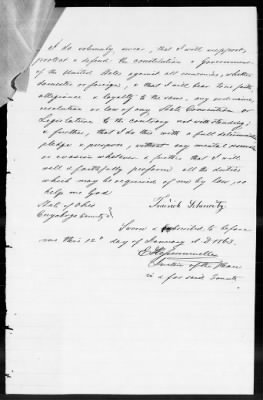 I do solemnly swear, that I will support,
protect & defend the constitution & Government
of the United States against all enemies, whether
domestic or foreign, & that I will bear true faith,
allegiance & loyalty to the same, any ordinance,
resolution or law of any State Convention or
Legislature to the contrary notwithstanding;
& further, that I do this with a full determination,
pledge & purpose, without any mental reservation
or evasion whatever & further that I will
well & faithfully perform all the duties
which may be required of me by law, so
help me God
State of Ohio
Cuyahoga County
Sworn & subscribed to before
me this 12th day of January A D 1863.
Justice of the Peace
in & for said County